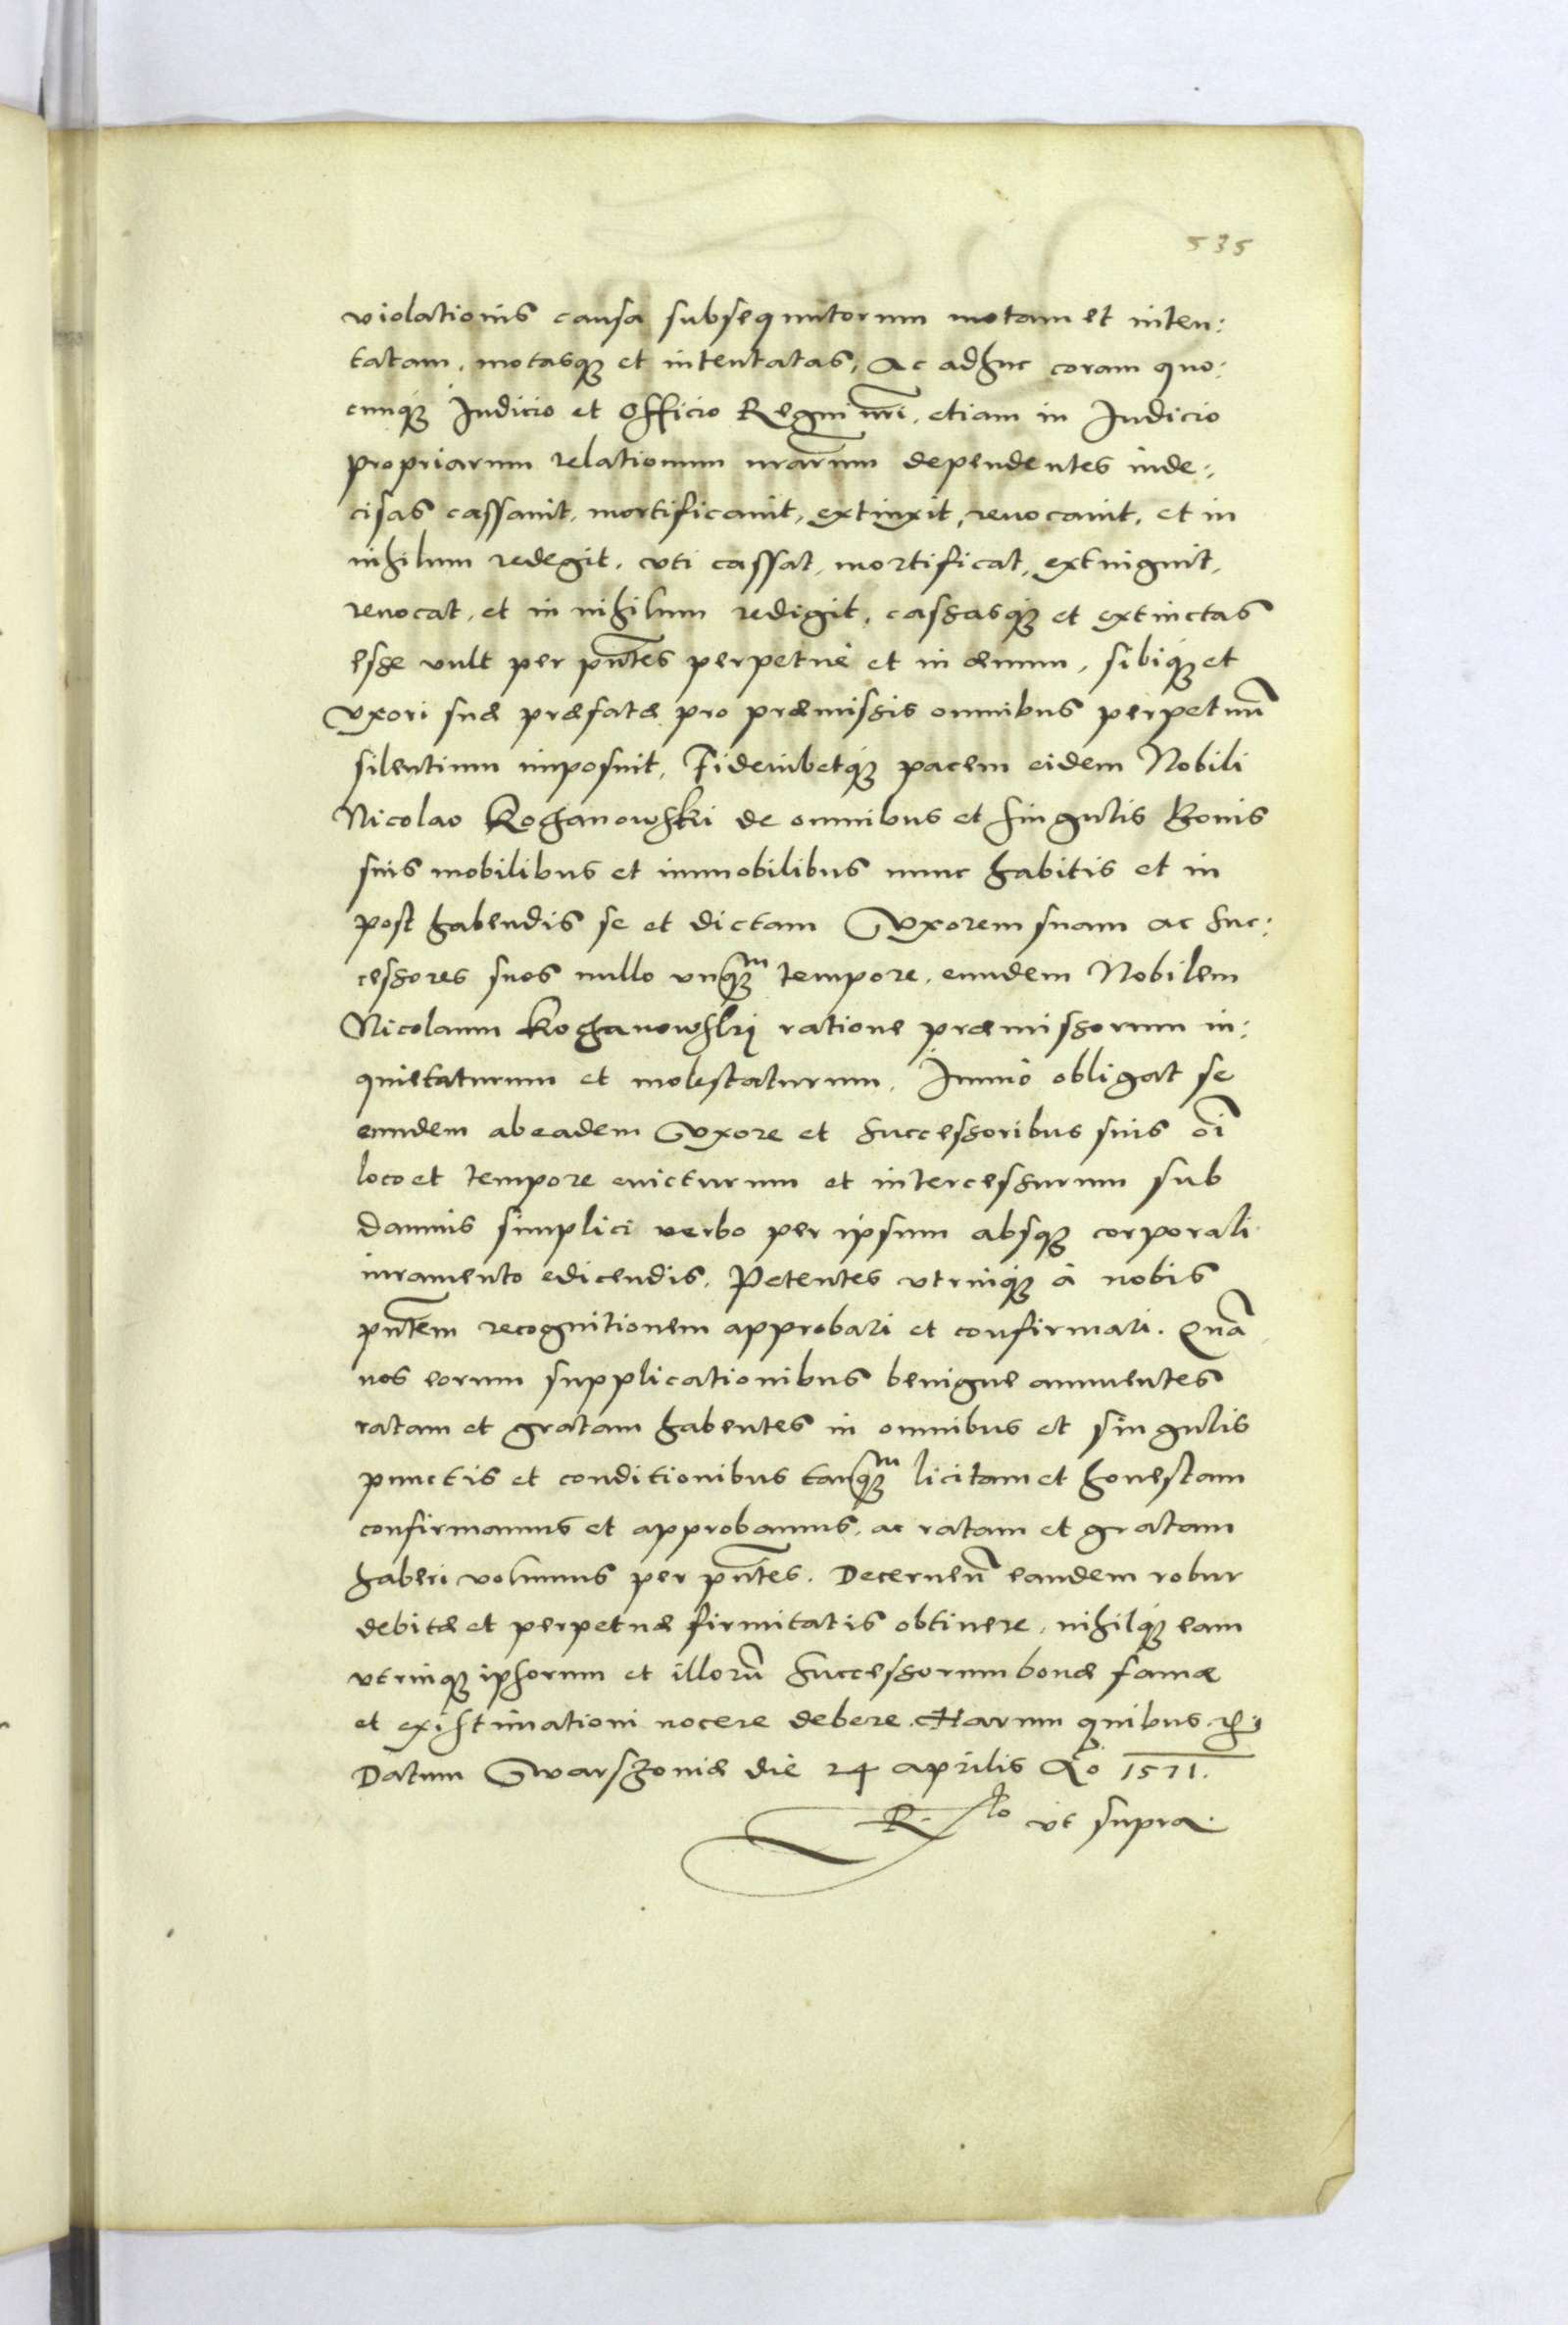 535
violationis causa subsequutorum motam et inten:
tatam, motasq₃ et intentatas, Ac adhuc coram quo:
cunq₃ Iudicio et Officio Regni nr̃i, etiam in Iudicio
propriarum relationum nrarũm dependentes inde:
cisas cassauit, mortificauit, extinxit, reuocauit, et in
nihilum redegit, vti cassat, mortificat, extinguit,
reuocat, et in nihilum redigit, cassasq₃ et extinctas
esse vult per pñtes perpetuè et in æuum, sibiq₃ et
Vxori suæ præfatæ pro præmissis omnibus perpetuũ
silentium imposuit, Fideiubetq₃ pacem eidem Nobili
Nicolao Kochanowski de omnibus et singulis Bonis
suis mobilibus et immobilibus nunc habitis et in
post habendis se et dictam Vxorem suam ac suc:
cessores suos nullo vnq₃m tempore, eundem Nobilem
Nicolaum Kochanowskij ratione præmissorum in:
quietaturum et molestaturum, Immò obligat se
eundem ab eadem Vxore et successoribus suis oĩ
loco et tempore euicturum et intercessurum sub
damnis simplici verbo per ipsum absq₃ corporali
iuramento edicendis. Petentes vtrinq₃ à nobis
pñtem recognitionem approbari et confirmari. Quã
nos eorum supplicationibus benigne annuentes
ratam et gratam habentes in omnibus et singulis
punctis et conditionibus tanq₃m licitam et honestam
confirmamus et approbamus, ac ratam et gratam
haberi volumus per pñtes. Decerneñ eandem robur
debitæ et perpetuæ firmitatis obtinere, nihilq₃ eam
vtrinq₃ ipsorum et illorũ successorum bonæ famæ
et existimationi nocere debere. Harum quibus etc.
Datum Warszouiæ die 24 aprilis Aõ 1571.
R.lo vt supra.